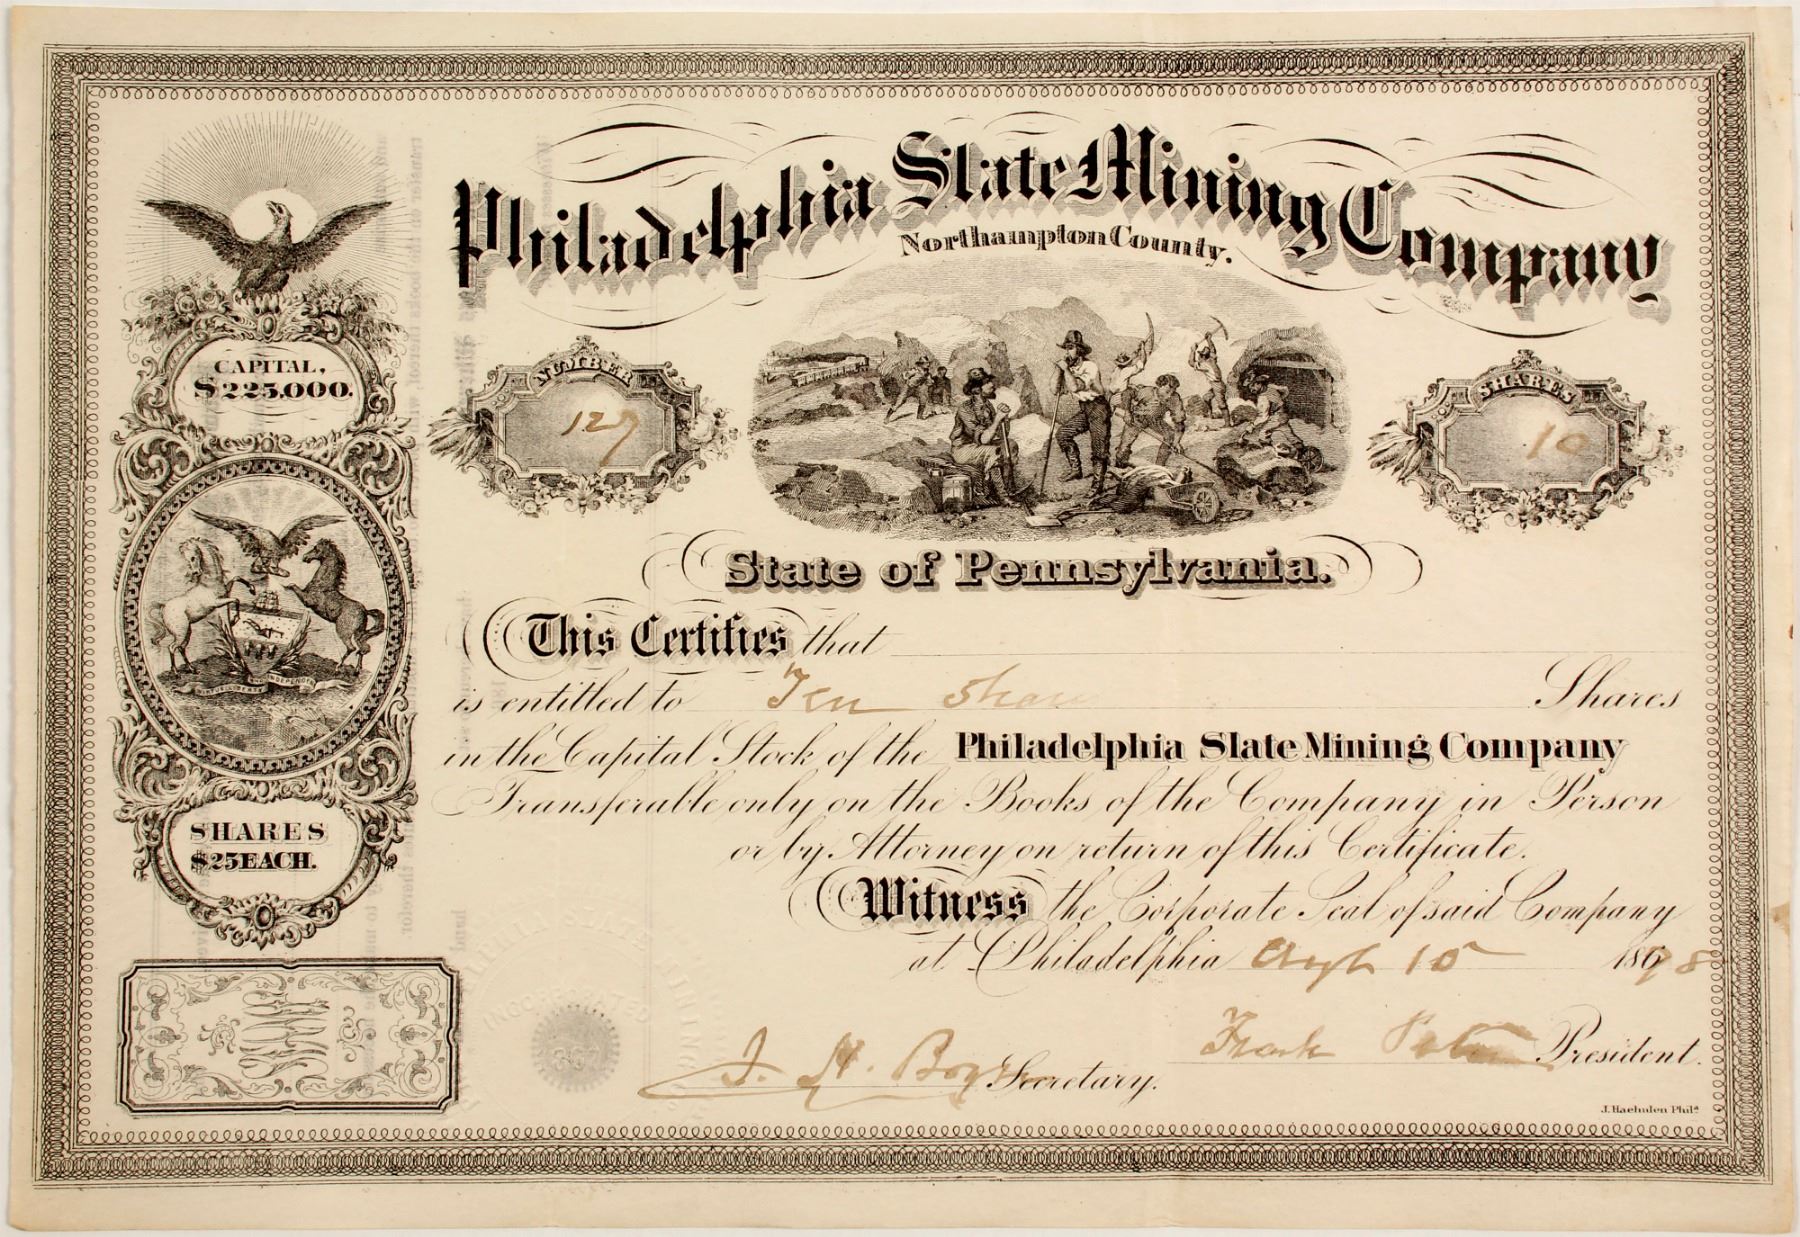 Philadelphia Slate Mining Company
Northampton County.
CAPITAL,
$225.000.
NUMBER
127
SHARES
10
State of Pennsylvania.
This Certifies that
is entitled to Ten Shares
in the Capital Stock of the Philadelphia Slate Mining Company
Transferable only on the Books of the Company in Person
or by Attorney on return of this Certificate.
SHARES
$25 EACH.
Witness the Corporate Seal of said Company
at Philadelphia 10 186
INCORPORATED
1867
J. H. Secretary.
Frank President.
J. Haehnlen Phila.